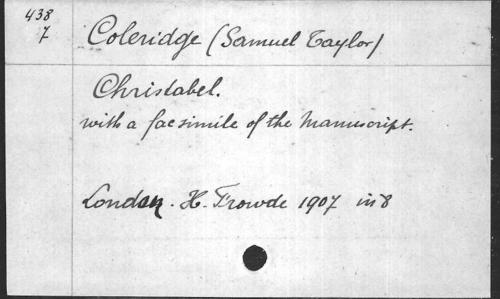 438
7
Coleridge (Samuel Taylor)
Christabel.
with a facsimile of the manuscript.
London. H. Frowde 1907 in 8